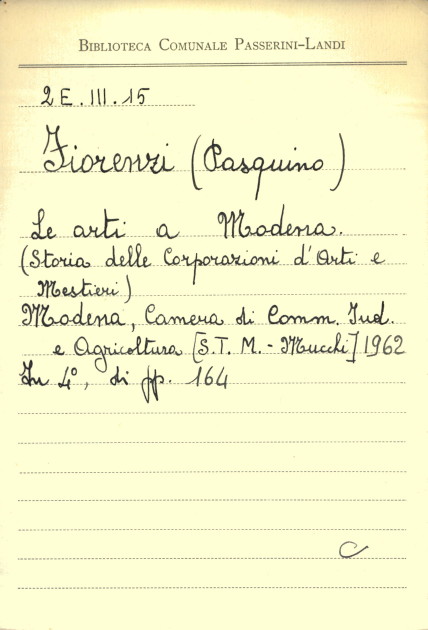 BIBLIOTECA COMUNALE PASSERINI-LANDI
2E.III.15
Fiorenzi (Pasquino)
Le arti a Modena.
(Storia delle Corporazioni d'Arti e
Mestieri)
Modena, Camera di Comm. Ind.
e Agricoltura [S.T.M.-Mucchi] 1962
In 4°, di pp. 164
C